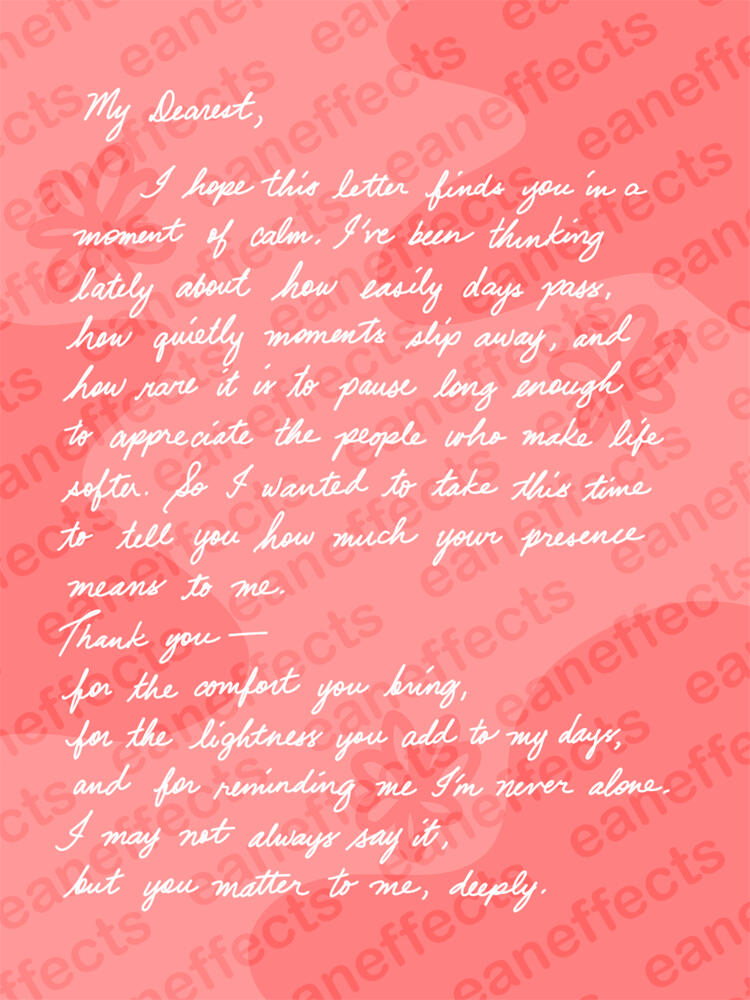 My Dearest,
I hope this letter finds you in a
moment of calm. I've been thinking
lately about how easily days pass,
how quietly moments slip away, and
how rare it is to pause long enough
to appreciate the people who make life
softer. So I wanted to take this time
to tell you how much your presence
means to me.
Thank you —
for the comfort you bring,
for the lightness you add to my days,
and for reminding me I'm never alone.
I may not always say it,
but you matter to me, deeply.
eaneffects